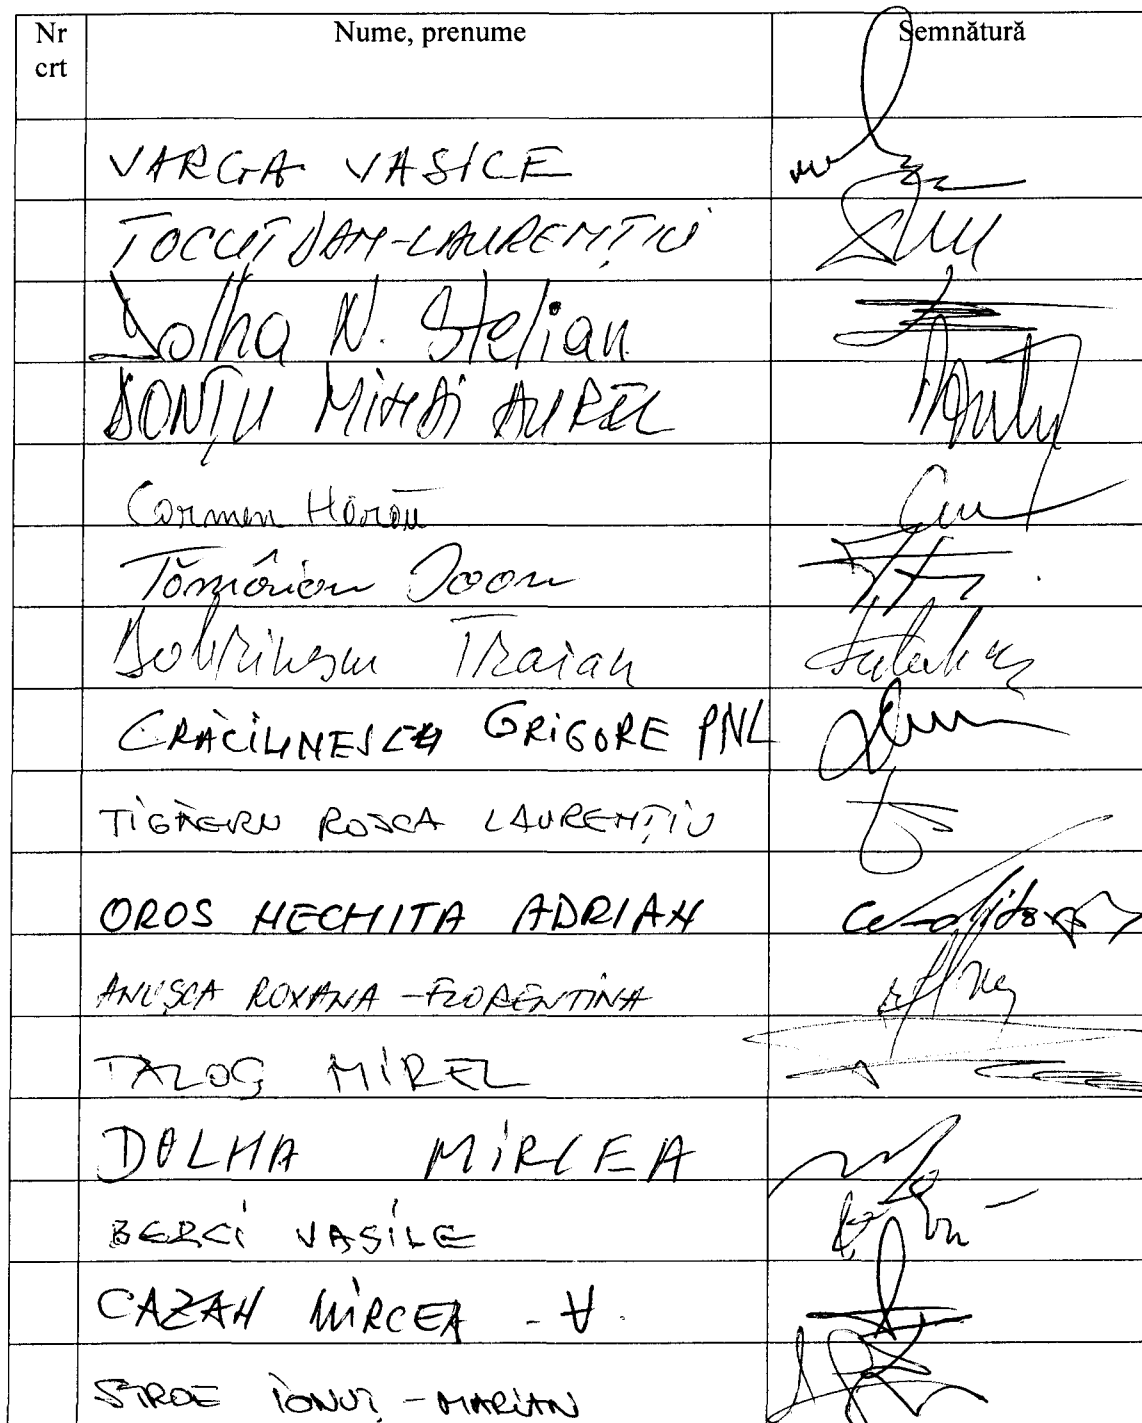 Nr crt Nume, prenume Semnătură
VARGA VASILE
TOCUȚ DAN-LAURENȚIU
Dolha N. Stelian
DONȚU MIHAI AUREL
Carmen Hărău
Tămâian Ioan
Dobrinescu Traian
CRĂCIUNESCU GRIGORE PNL
TIGĂERU ROȘCA LAURENȚIU
OROS NECHITA ADRIAN
ANUȘCA ROXANA-FLORENTINA
TALOȘ MIREL
DOLHA MIRCEA
BERCI VASILE
CAZAN MIRCEA - V.
STROE IONUȚ-MARIAN